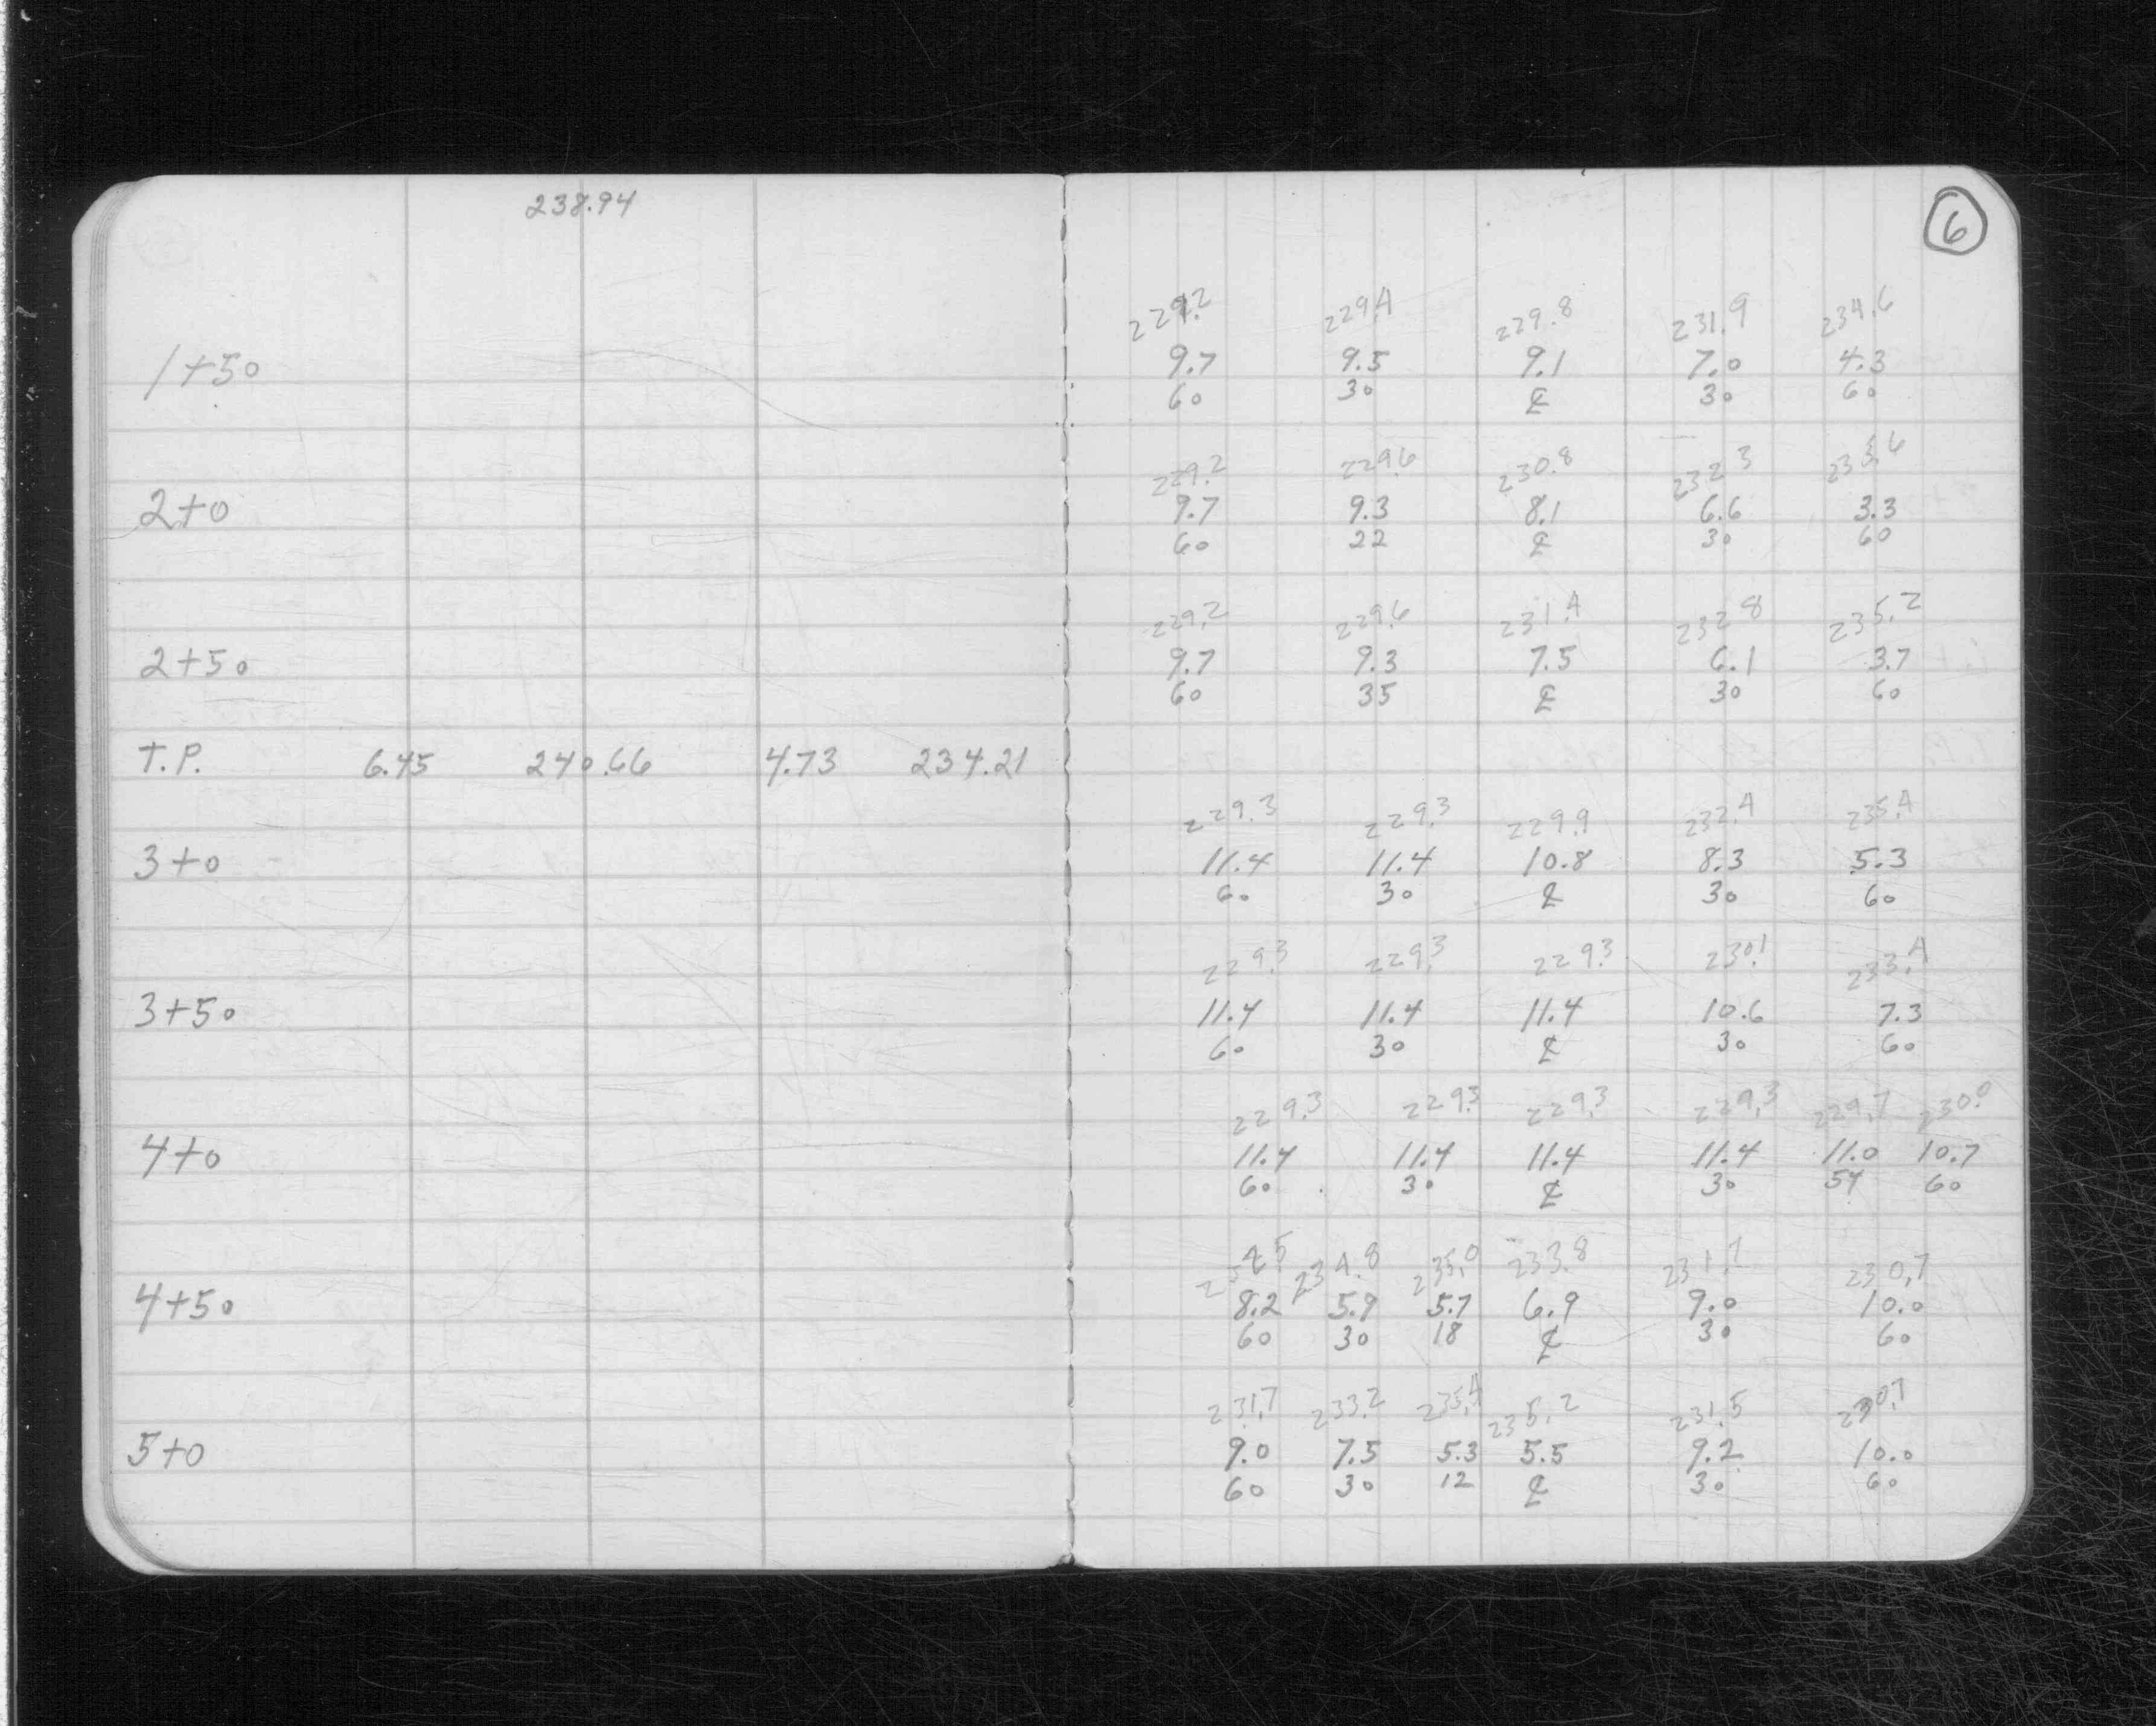 238.94
6
229.2 229.4 229.8 231.9 234.6
1+50 9.7 9.5 9.1 7.0 4.3
60 30 ℄ 30 60
229.2 229.6 230.8 232.3
2+0 9.7 9.3 8.1 6.6 3.3
60 22 ℄ 30 60
229.2 229.6 231.4 232.8 235.2
2+50 9.7 9.3 7.5 6.1 3.7
60 35 ℄ 30 60
T.P. 6.45 240.66 4.73 234.21
229.3 229.3 229.9 232.4 235.4
3+0 11.4 11.4 10.8 8.3 5.3
60 30 ℄ 30 60
229.3 229.3 229.3 230.1 233.4
3+50 11.4 11.4 11.4 10.6 7.3
60 30 ℄ 30 60
229.3 229.3 229.3 229.3 229.7 230.0
4+0 11.4 11.4 11.4 11.4 11.0 10.7
60 30 ℄ 30 54 60
234.8 235.0 233.8 231.7 230.7
4+50 8.2 5.9 5.7 6.9 9.0 10.0
60 30 18 ℄ 30 60
231.7 233.2 235.4 235.2 231.5 230.7
5+0 9.0 7.5 5.3 5.5 9.2 10.0
60 30 12 ℄ 30 60